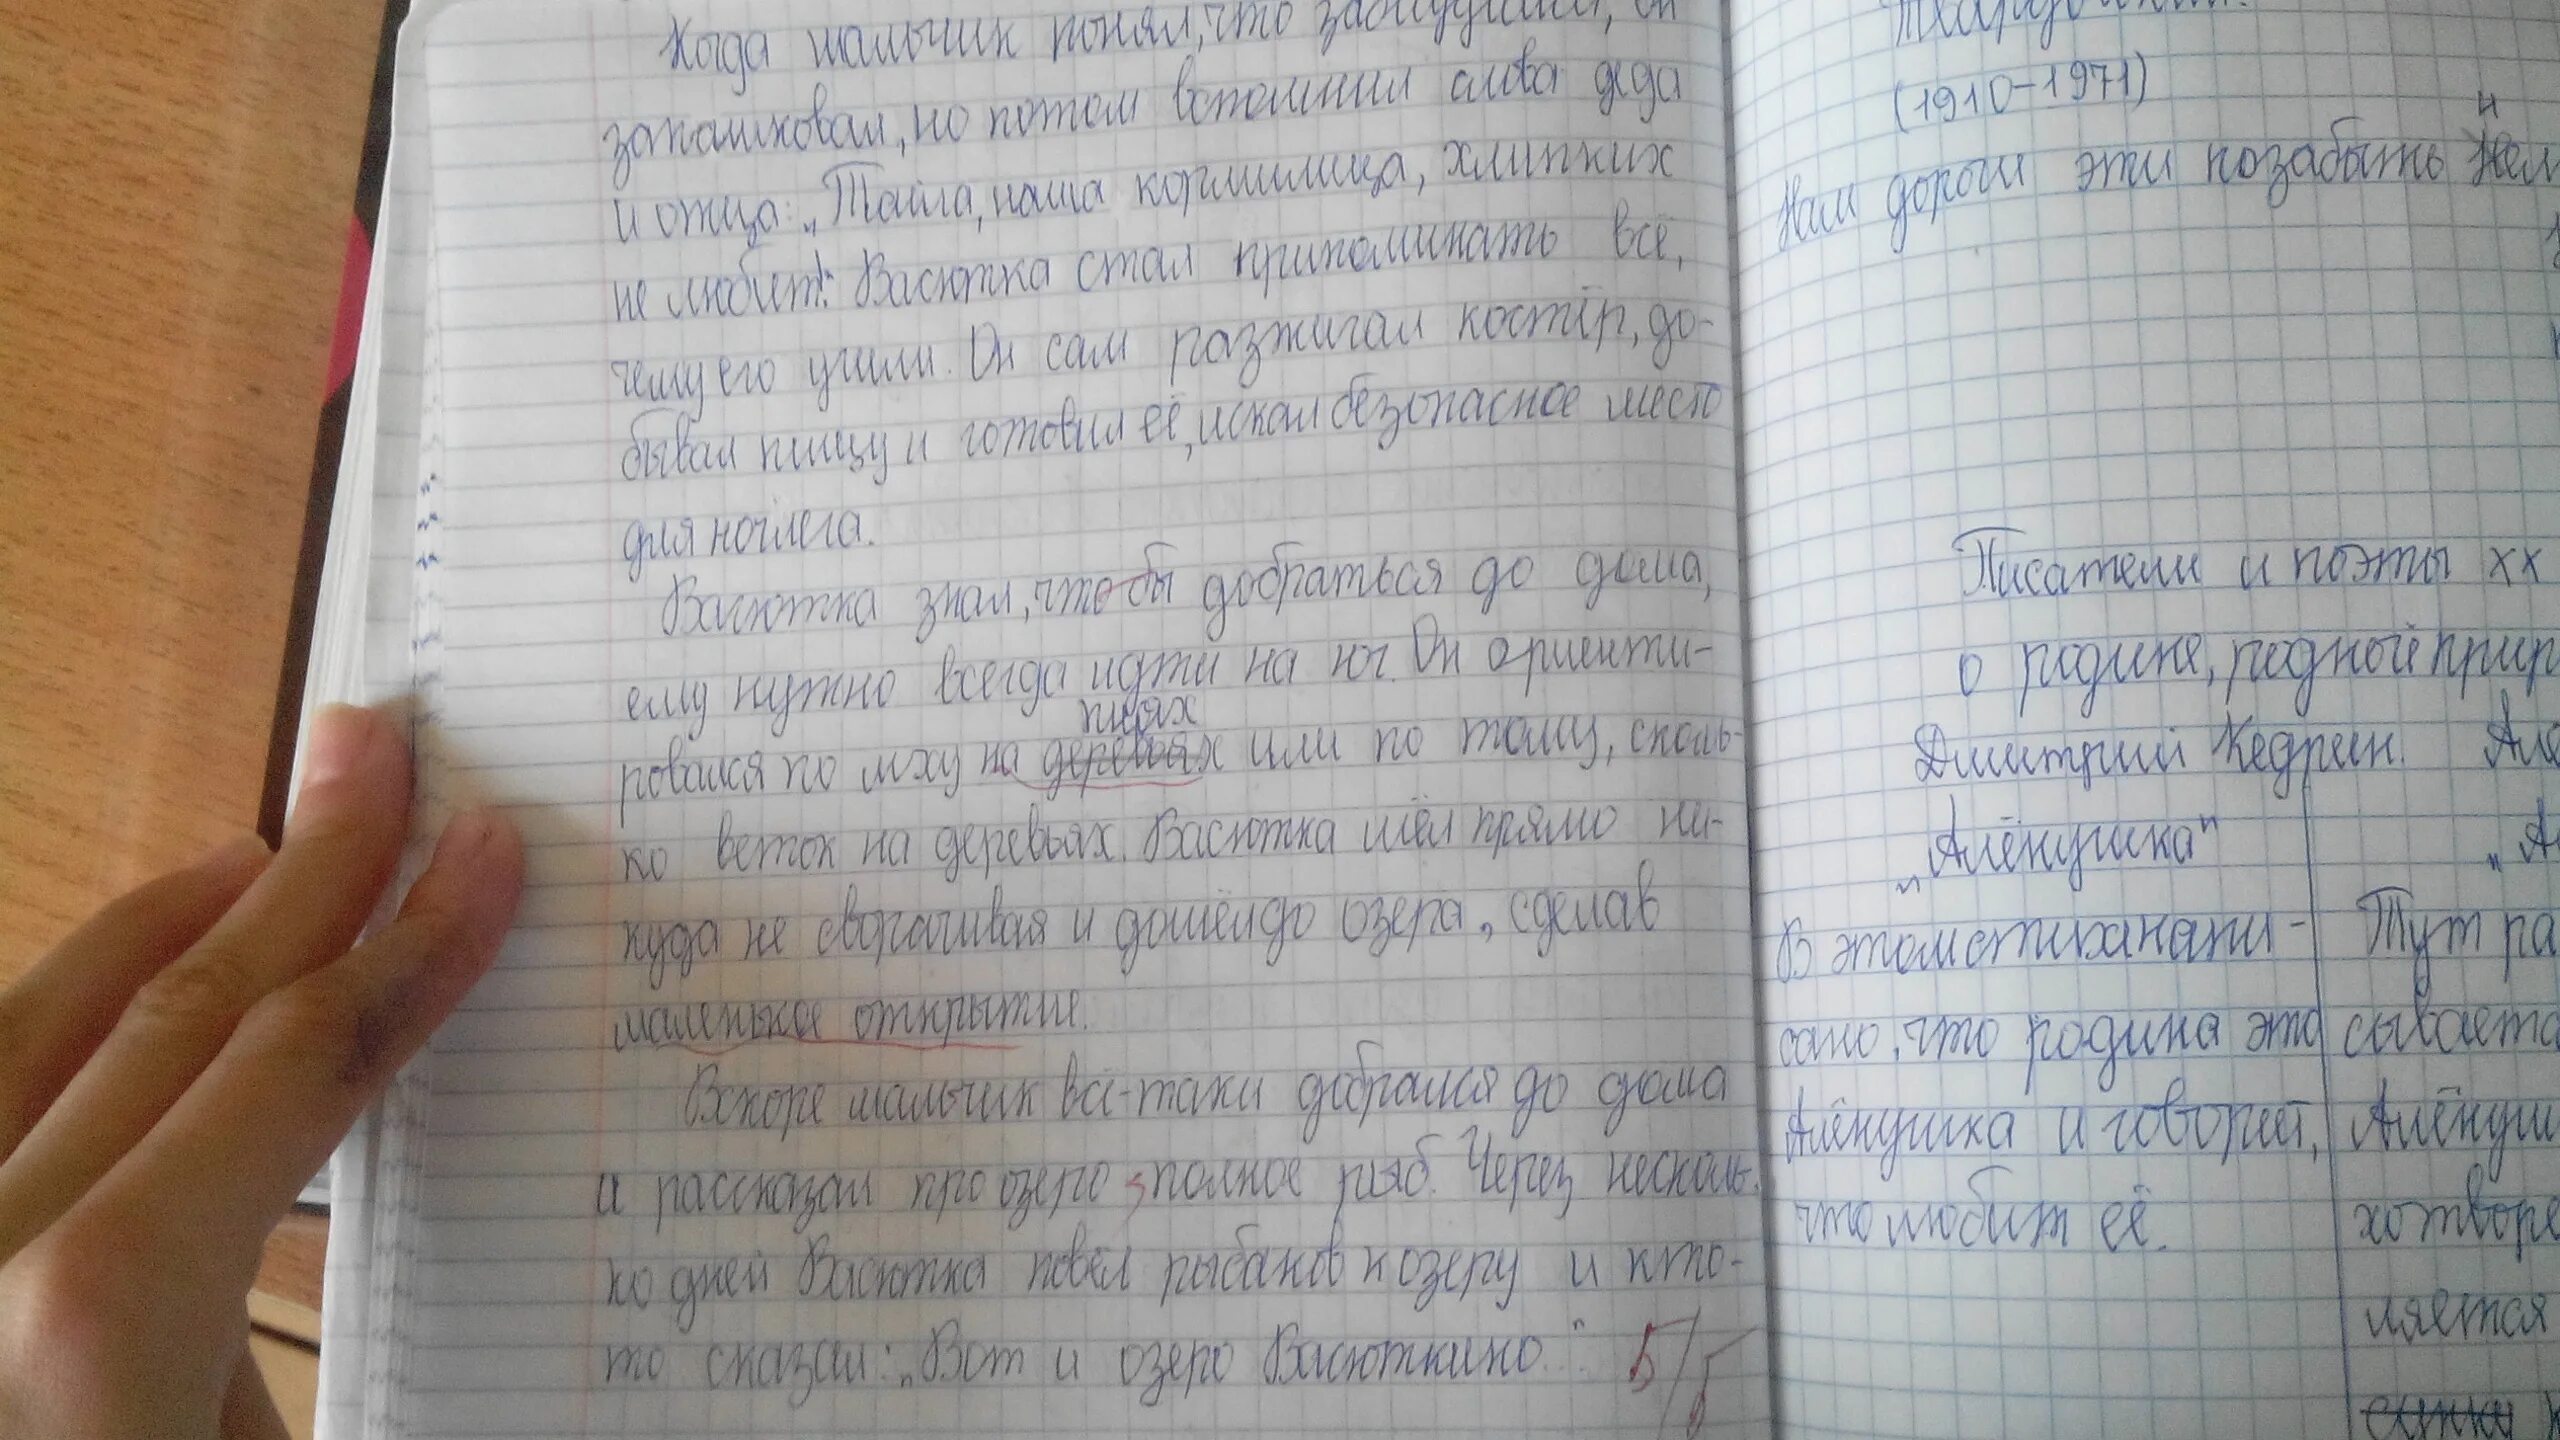 Когда мальчик понял, что заблудился, он
запаниковал, но потом вспомнил слова деда
и отца: „Тайга, наша кормилица, хлипких
не любит!" Васютка стал припоминать всё,
чему его учили. Он сам разжигал костёр, до-
бывал пищу и готовил её, искал безопасное место
для ночлега.
Васютка знал, чтобы добраться до дома,
ему нужно всегда идти на юг. Он ориенти-
пнях
ровался по мху на деревьях или по тому, сколь-
ко веток на деревьях. Васютка шёл прямо ни-
куда не сворачивая и дошёл до озера, сделав
маленькое открытие.
Вскоре мальчик всё-таки добрался до дома
и рассказал про озеро, полное рыб. Через несколь-
ко дней Васютка повёл рыбаков к озеру и кто-
то сказал: „Вот и озеро Васюткино..."
5/5
(1910-1971)
и
Нам дороги эти позабыть
Писатели и поэты XX
о родине, родной прир
Дмитрий Кедрин. Алё
„Алёнушка" „А
В этом стихе напи-
сано, что родина это
Алёнушка и говорит,
что любит её.
Тут ра
сывается
Алёнуш
хотворе
ляется